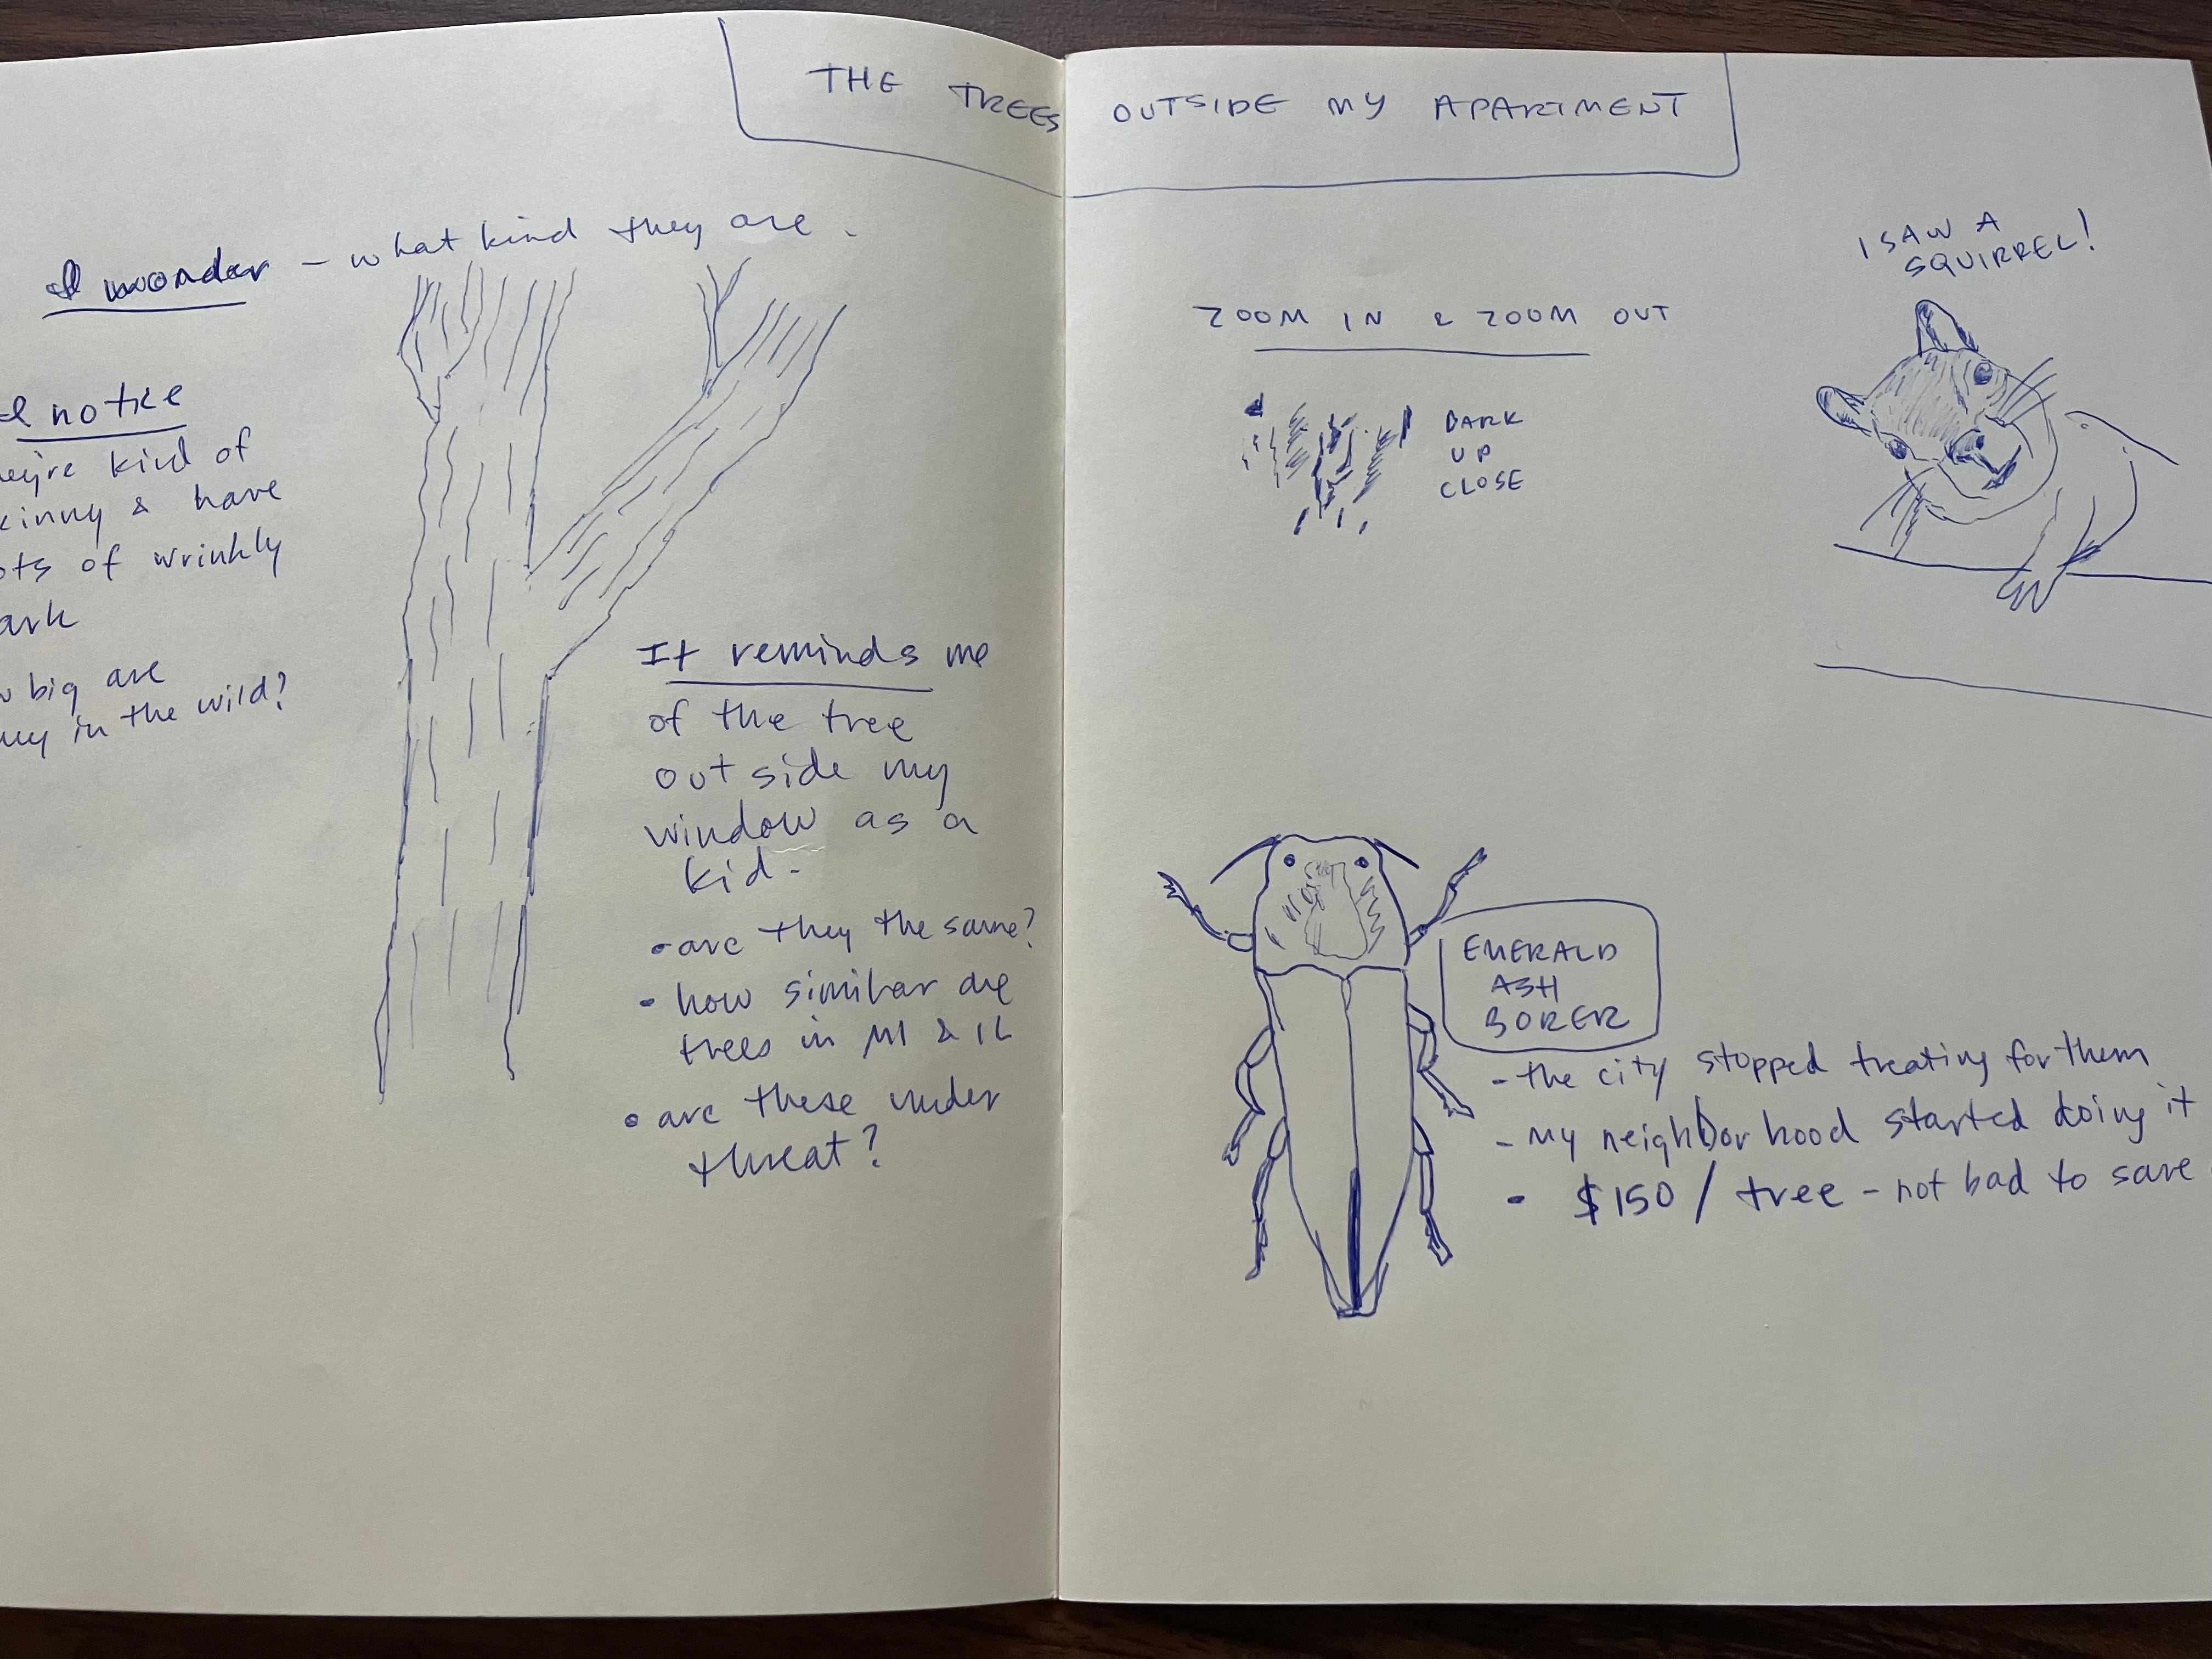 THE TREES OUTSIDE MY APARTMENT
I wonder - what kind they are.
I notice
they're kind of
skinny & have
lots of wrinkly
bark
big are
in the wild?
It reminds me
of the tree
outside my
window as a
kid.
• are they the same?
• how similar are
trees in MI & IL
• are these under
threat?
ZOOM IN & ZOOM OUT
BARK
UP
CLOSE
I SAW A
SQUIRREL!
EMERALD
ASH
BORER
- the city stopped treating for them
- my neighborhood started doing it
• $150 / tree - not bad to save